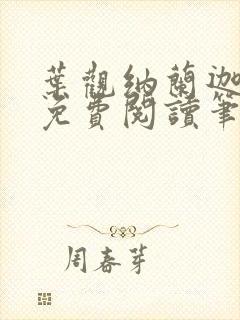 葉觀納蘭迦
免費閱讀筆
周春芽